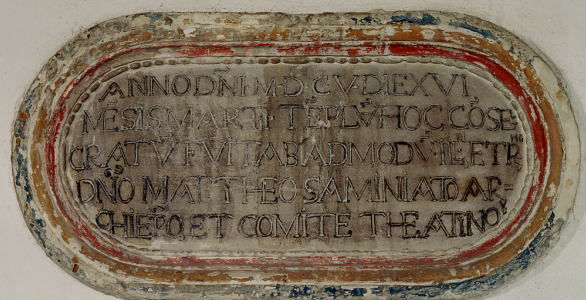 ANNO DÑI·M·D·C·V·DIE XVI
MĒSIS MARTII TĒPLV̄ HOC CŌSE
CRATV̄ FVIT AB IL ET R
DÑO MATTHEO SAMINIATO AR-
CHIEPŌ ET COMITE THEATINO